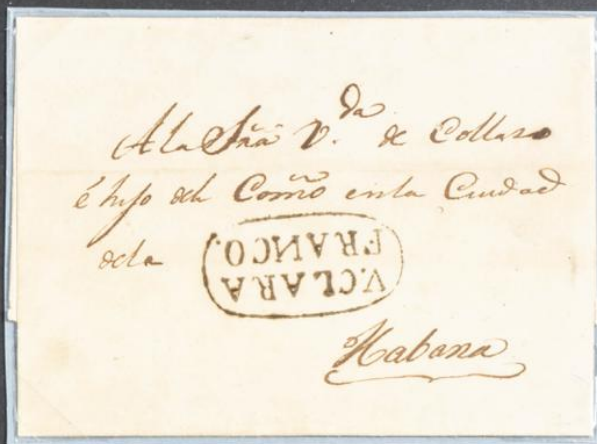 A la Sñā V.da de Collazo
é hijo del Comño en la Ciudad
de la
V.CLARA
FRANCO.
Habana